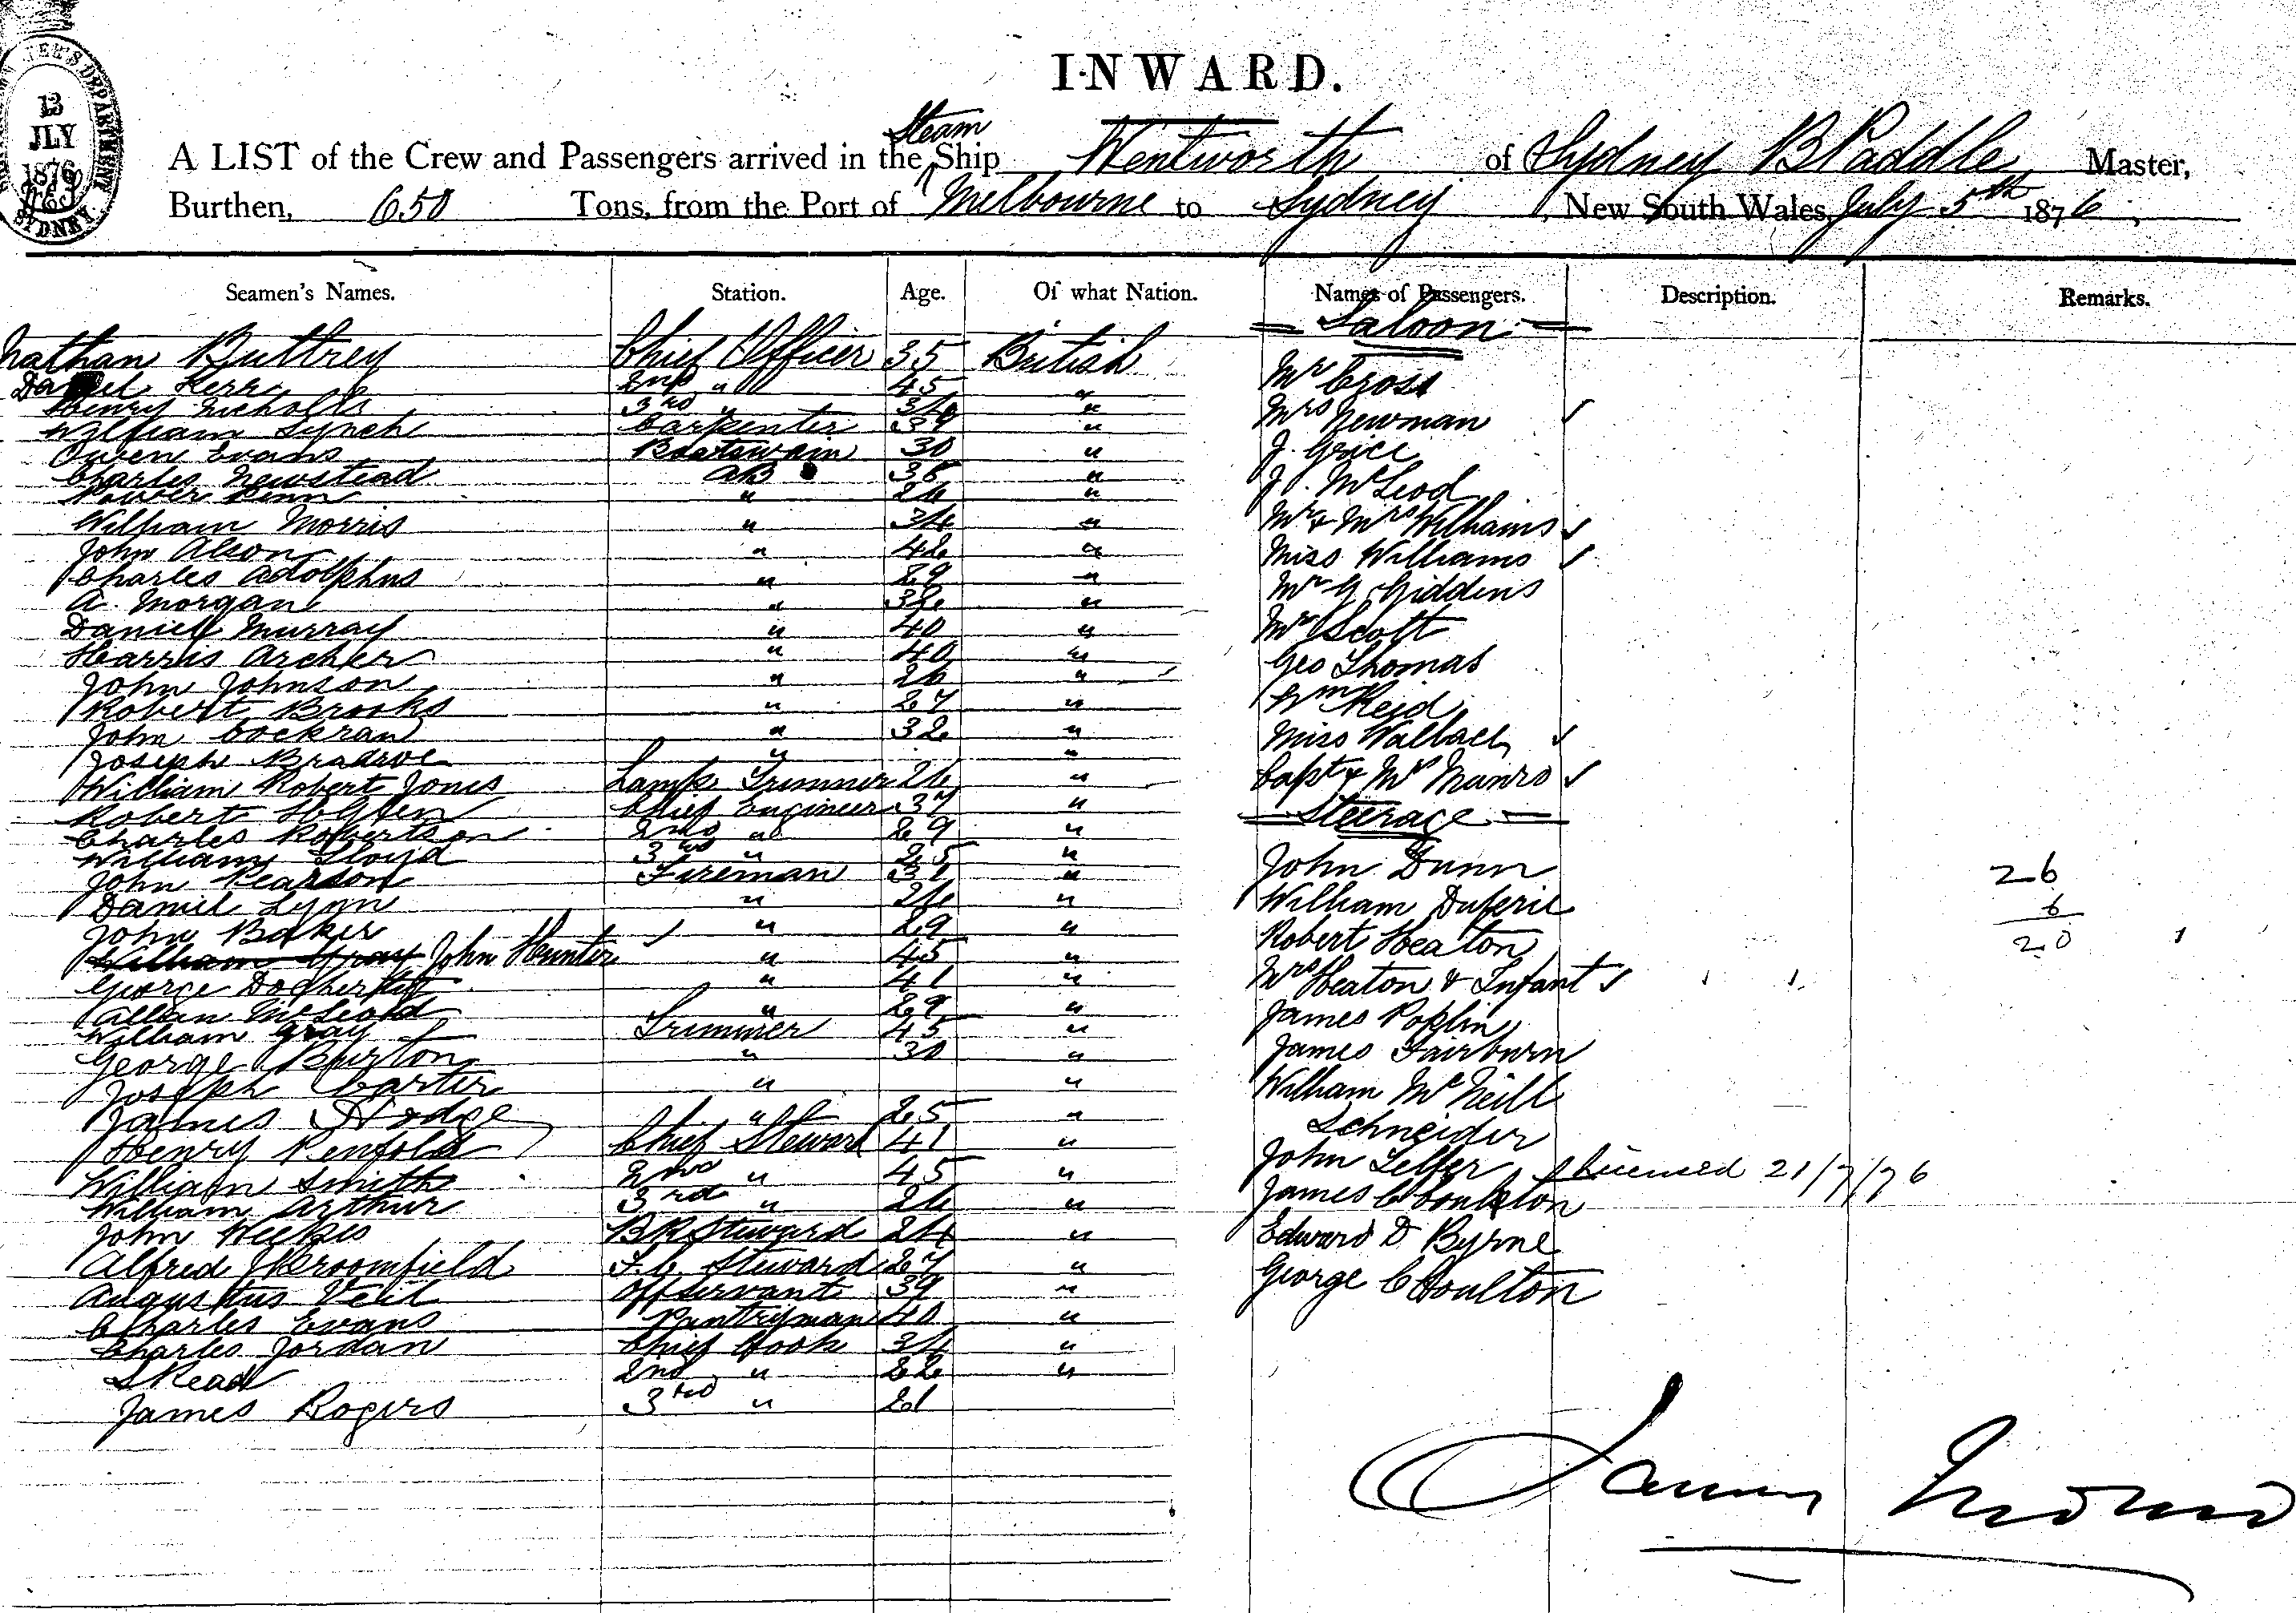 INWARD.
13
JLY
1876
SYDNEY.
Steam
A LIST of the Crew and Passengers arrived in the Ship Wentworth of Sydney B Paddle Master,
Burthen, 650 Tons, from the Port of Melbourne to Sydney, New South Wales, July 5th 1876,
Seamen's Names. Station. Age. Of what Nation. Names of Passengers. Description. Remarks.
Nathan Buttrey Chief Officer 35 British
Daniel Kerr 2nd " 45 "
Henry Nicholls 3rd " 34 "
William Lynch Carpenter 39 "
Owen Evans Boatswain 30 "
Charles Newstead AB "
Penn " "
William Morris " 34 "
John " 42 "
Charles Adolphus " 29 "
A. Morgan " 32 "
Daniell Murray " 40 "
Harris Archer " 40 "
John Johnson " 26 "
Robert Brooks " 27 "
John Cockran " 32 "
Joseph " "
William Robert Jones Lamp Trimmer "
Robert Chief Engineer 37 "
Charles Robertson 2nd " 29 "
William Lloyd 3rd " 25 "
John Pearson Fireman 31 "
Daniel Lynn " "
John Baker " 29 "
William Gray John Hunter " 45 "
George " 41 "
Allan McLeod " 29 "
William Gray Trimmer 45 "
George Burton " 30 "
Joseph Carter " "
James Hodge " 25 "
Henry Penfold Chief Steward 41 "
William Smith 2nd " 45 "
William Arthur 3rd " "
John Weekes BR Steward 24 "
Alfred Broomfield F.C. Steward 27 "
Augustus Veil Off servant 39 "
Charles Evans Pantryman 40 "
Charles Jordan Chief Cook 34 "
Read 2nd " 22 "
James Rogers 3rd " 21
= Saloon =
Mr Cross
Mrs Newman ✓
J. Grice
J. McLeod
Mr & Mrs Williams ✓
Miss Williams ✓
Mr G Giddins
Mr Scott
Geo Thomas
Wm Reid
Miss Wallach ✓
Capt & Mrs Munro ✓
= Steerage =
John Dunn
William
Robert Heaton
Mrs Heaton & Infant ✓
James Poplin
James Fairburn
William McNeill
Schneider
John
James
Edward D Byrne
George C Houlton
26
6
20
21/7/76